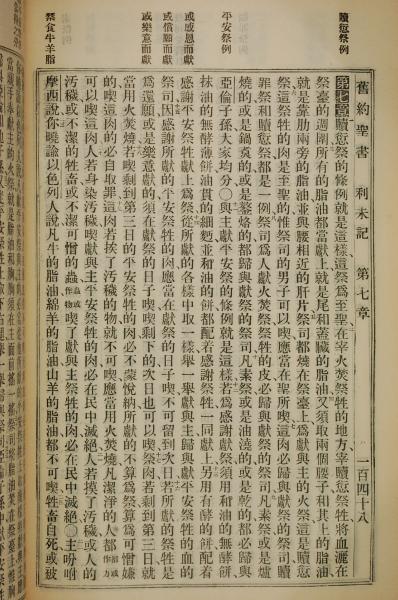 贖愆祭例
平安祭例
或感恩而獻
或償願而獻
或樂意而獻
禁食牛羊脂
舊約聖書 利未記 第七章 一百四十八
第七章贖愆祭的條例就是這樣、這祭為至聖、在宰火焚祭牲的地方宰贖愆祭牲、將血灑在
祭臺的週圍、所有的脂油都當獻上、就是尾和蓋臟的脂油、又須取兩個腰子、和其上的脂油、
就是靠肋兩旁的脂油、並與腰相近的肝片、祭司都燒在祭臺上、為獻與主的火祭、這是贖愆
祭、這祭牲的肉是至聖的、惟祭司的男子可以喫、應當在聖所喫、這肉必歸與獻祭的祭司、贖
罪祭和贖愆祭都是一例、祭司為人獻火焚祭、祭牲的皮、必歸與獻祭的祭司、凡素祭、或是爐
燒的、或是鍋裏的、或是鏊烙的、都歸與獻祭的祭司、凡素祭、或是油澆的、或是乾的、都必歸與
亞倫子孫大家均分○與主獻平安祭的條例就是這樣、若為感謝獻祭、須用和油的無酵餅、
抹油的無酵薄餅、油貫的細麵、並和油的餅、都配着感謝祭牲一同獻上、另用有酵的餅配着
感謝平安祭牲獻上、為祭從所獻的各樣中取一樣舉一舉獻與主、歸與灑平安祭牲的血的
祭司、因感謝所獻的平安祭牲的肉、應當在獻祭的日子喫、不可留到次日、若所獻的祭牲是
為還願、或是樂意獻的、須在獻祭的日子喫、喫剩下的、次日也可以喫、祭肉若剩到第三日、就
當用火焚燒、若喫剩到第三日的平安祭牲的肉、必不蒙悅納、所獻的不算為祭、算為可憎嫌
的、喫這肉的必自取罪、這肉若挨了汚穢的物、就不可喫、應當用火焚燒、凡潔淨的人、都或作方
可以喫這肉、人若身染汚穢、喫獻與主平安祭牲的肉、必在民中滅絕、人若挨了汚穢、或人的
汚穢、或不潔的牲畜、或不潔可憎的蟲蟲或作物喫了獻與主祭牲的肉、必在民中滅絕○主吩咐
摩西說、你曉諭以色列人說、凡牛的脂油、綿羊的脂油、山羊的脂油、都不可喫、牲畜自死或被